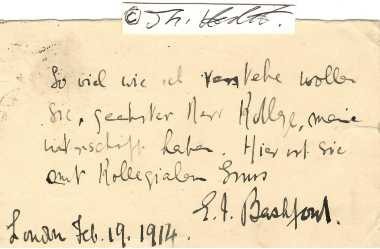 © Th. Hecht.
So viel wie ich verstehe wollen
Sie, geehrter Herr Kollege, meine
unterschift haben. Hier ist sie
mit Kollegialem Gruss
E. F. Bashford.
London Feb. 19. 1914.